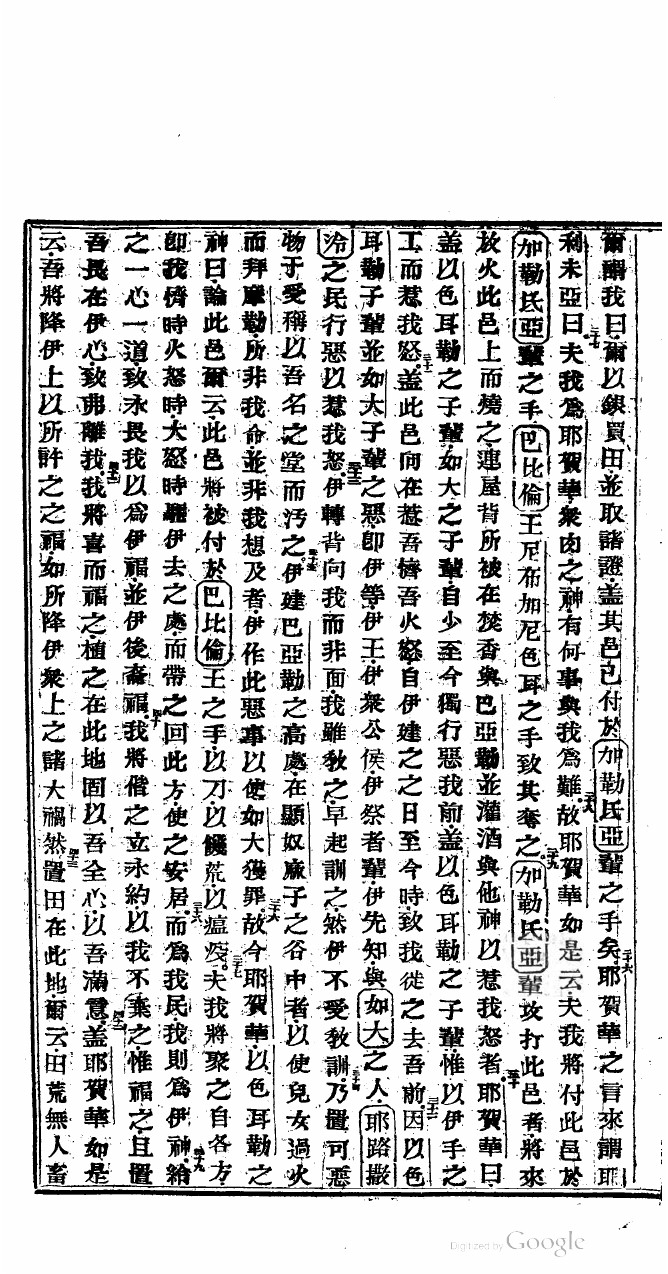 爾謂我曰爾以銀買田並取諸證蓋其邑已付於加勒氏亞輩之手矣三十六耶賀華之言來謂耶
利未亞曰三十七夫我為耶賀華衆肉之神有何事與我為難三十八故耶賀華如是云夫我將付此邑於
加勒氏亞輩之手巴比倫王尼布加尼色耳之手致其奪之三十九加勒氏亞輩攻打此邑者將來
放火此邑上而燒之連屋背所被在焚香與巴亞勒並灌酒與他神以惹我怒者三十耶賀華曰
蓋以色耳勒之子輩如大之子輩自少至今獨行惡我前蓋以色耳勒之子輩惟以伊手之
工而惹我怒三十一蓋此邑向在惹吾憐吾火怒自伊建之之日至今時致我從之去吾前三十二因以色
耳勒子輩並如大子輩之惡卽伊等伊王伊衆公侯伊祭者輩伊先知與如大之人耶路撒
冷之民行惡以惹我怒三十三伊轉背向我而非面我雖教之早起訓之然伊不愛教訓三十四乃置可惡
物于受稱以吾名之堂而汚之三十五伊建巴亞勒之高處在顯奴麻子之谷中者以使兒女過火
而拜摩勒所非我命並非我想及者伊作此惡事以使如大獲罪三十六故今耶賀華以色耳勒之
神曰論此邑爾云此邑將被付於巴比倫王之手以刀以饑荒以瘟疫三十七夫我將聚之自各方
卽我憐時火怒時大怒時趕伊去之處而帶之回此方使之安居三十八而為我民我則為伊神三十九給
之一心一道致永畏我以為伊福並伊後裔福四十我將偕之立永約以我不棄之惟福之且置
吾畏在伊心致弗離我四十一我將喜而福之植之在此地固以吾全心以吾滿意四十二蓋耶賀華如是
云吾將降伊上以所許之之福如所降伊衆上之諸大禍然四十三置田在此地爾云田荒無人畜
Digitized by Google